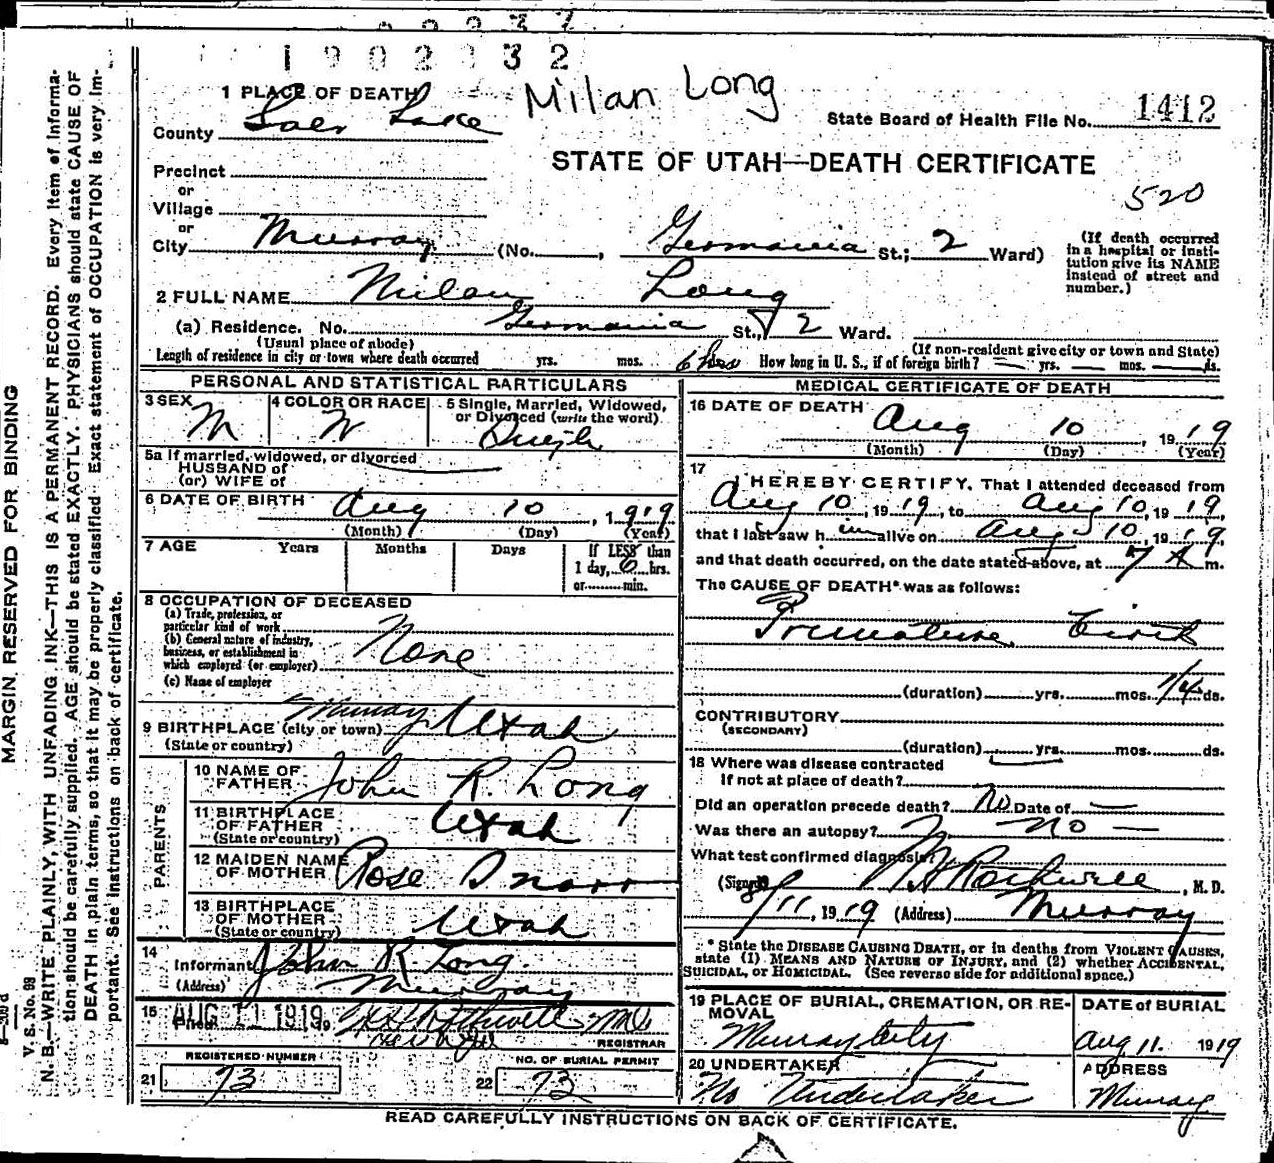 1902932
1 PLACE OF DEATH
Milan Long
County Salt Lake
State Board of Health File No. 1412
STATE OF UTAH—DEATH CERTIFICATE
Precinct
or
520
Village
or
City Murray (No. , Germania St.; 2 Ward)
(If death occurred in a hospital or institution give its NAME instead of street and number.)
2 FULL NAME Milan Long
(a) Residence. No. Germania St., 2 Ward.
(Usual place of abode)
(If non-resident give city or town and State)
Length of residence in city or town where death occurred yrs. mos. 6 hrs How long in U. S., if of foreign birth? — yrs. — mos. — ds.
PERSONAL AND STATISTICAL PARTICULARS
3 SEX M
4 COLOR OR RACE W
5 Single, Married, Widowed, or Divorced (write the word) Single
5a If married, widowed, or divorced
HUSBAND of
(or) WIFE of
6 DATE OF BIRTH Aug 10, 1919
(Month) (Day) (Year)
7 AGE Years Months Days If LESS than
1 day, 6 hrs.
or min.
8 OCCUPATION OF DECEASED
(a) Trade, profession, or
particular kind of work
(b) General nature of industry,
business, or establishment in
which employed (or employer) None
(c) Name of employer
9 BIRTHPLACE (city or town) Murray Utah
(State or country)
PARENTS
10 NAME OF FATHER John R. Long
11 BIRTHPLACE OF FATHER Utah
(State or country)
12 MAIDEN NAME OF MOTHER Rose
13 BIRTHPLACE OF MOTHER Utah
(State or country)
14 Informant John R Long.
(Address) Murray
15 Filed AUG 11 1919 MD
REGISTRAR
REGISTERED NUMBER
21 73
NO. OF BURIAL PERMIT
22 73
MEDICAL CERTIFICATE OF DEATH
16 DATE OF DEATH Aug 10, 1919
(Month) (Day) (Year)
17 I HEREBY CERTIFY, That I attended deceased from
Aug 10, 1919, to Aug 10, 1919,
that I last saw him alive on Aug 10, 1919,
and that death occurred, on the date stated above, at 7 A m.
The CAUSE OF DEATH* was as follows:
Premature Birth
(duration) yrs. mos. 1/4 ds.
CONTRIBUTORY
(SECONDARY)
(duration) yrs. mos. ds.
18 Where was disease contracted
if not at place of death?
Did an operation precede death? No Date of —
Was there an autopsy? No —
What test confirmed diagnosis?
(Signed) Rothwell, M. D.
8/11, 1919 (Address) Murray
* State the DISEASE CAUSING DEATH, or in deaths from VIOLENT CAUSES,
state (1) MEANS AND NATURE OF INJURY, and (2) whether ACCIDENTAL,
SUICIDAL, or HOMICIDAL. (See reverse side for additional space.)
19 PLACE OF BURIAL, CREMATION, OR REMOVAL
Murray City
DATE OF BURIAL
Aug 11. 1919
20 UNDERTAKER
No Undertaker
ADDRESS
Murray
READ CAREFULLY INSTRUCTIONS ON BACK OF CERTIFICATE.
MARGIN RESERVED FOR BINDING
V. S. No. 98
N. B.—WRITE PLAINLY, WITH UNFADING INK—THIS IS A PERMANENT RECORD. Every item of informa-
tion should be carefully supplied. AGE should be stated EXACTLY. PHYSICIANS should state CAUSE OF
DEATH in plain terms, so that it may be properly classified. Exact statement of OCCUPATION is very im-
portant. See instructions on back of certificate.